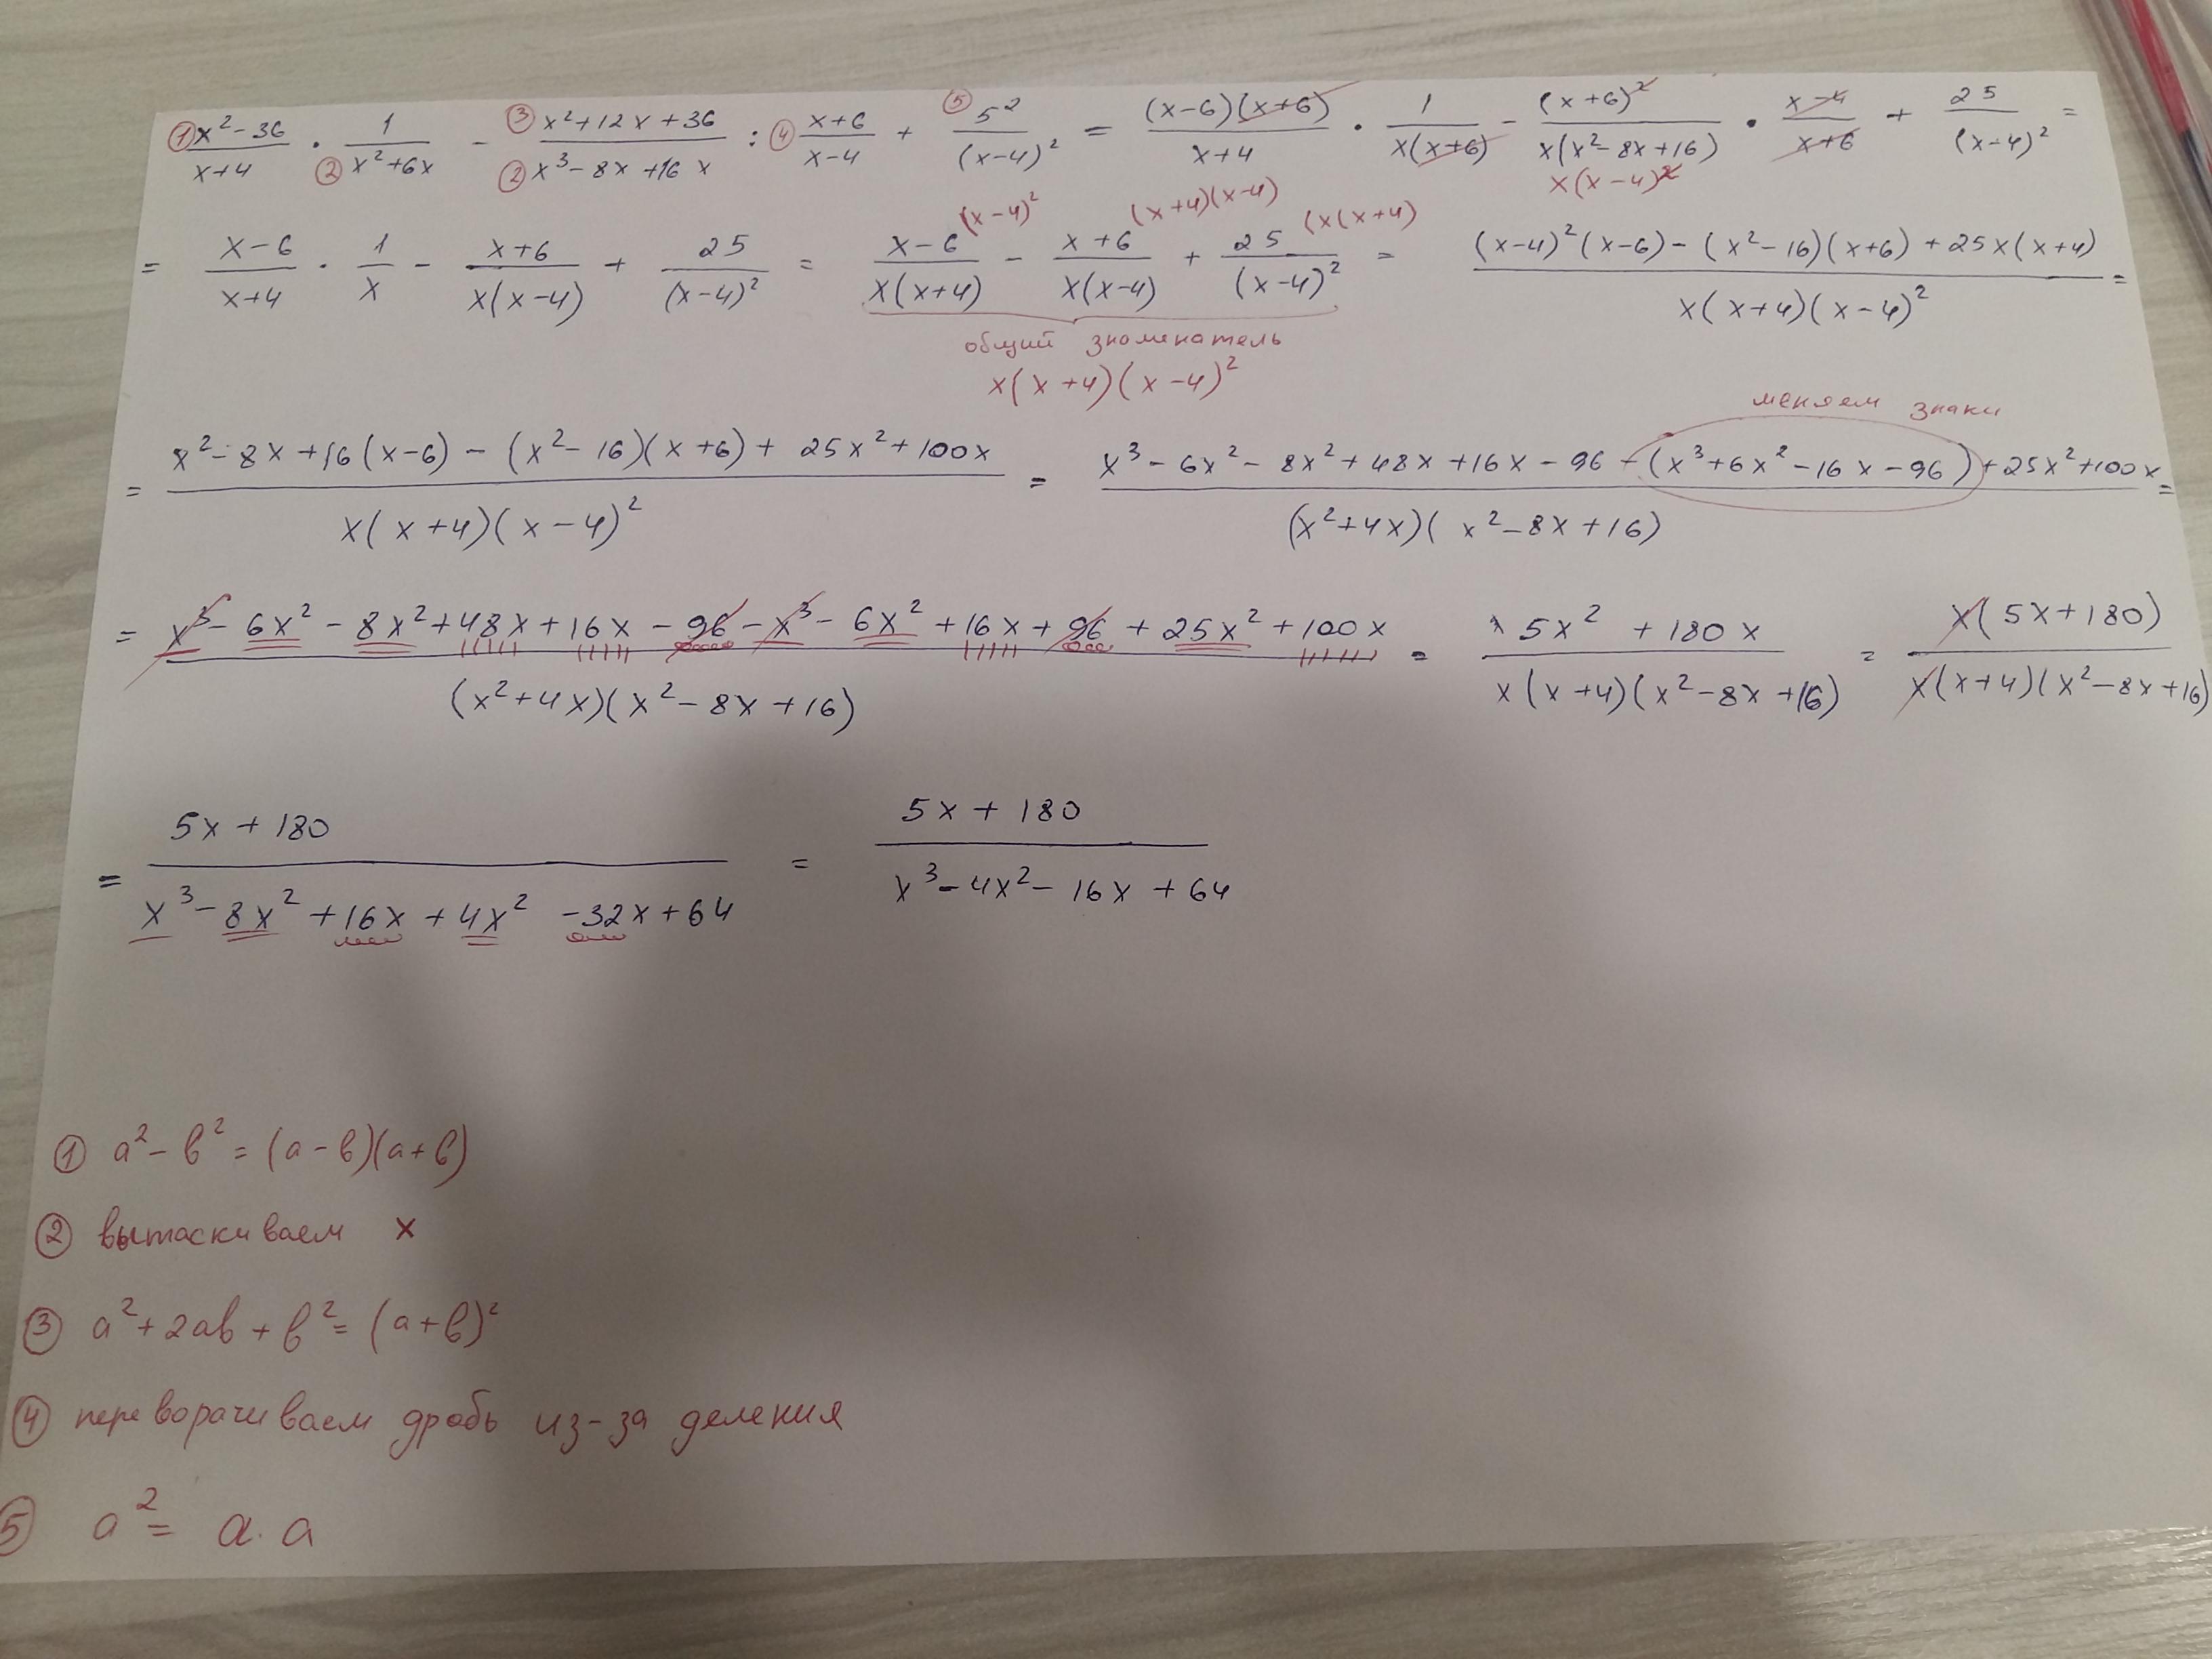 ① (x²-36)/(x+4) · 1/(② x²+6x) - (③ x²+12x+36)/(② x³-8x+16x) : ④ (x+6)/(x-4) + ⑤ 5²/(x-4)² = (x-6)(x+6)/(x+4) · 1/(x(x+6)) - (x+6)²/(x(x²-8x+16)) · (x-4)/(x+6) + 25/(x-4)² =
x(x-4)²
(x-4)² (x+4)(x-4) (x(x+4)
= (x-6)/(x+4) · 1/x - (x+6)/(x(x-4)) + 25/(x-4)² = (x-6)/(x(x+4)) - (x+6)/(x(x-4)) + 25/(x-4)² = ((x-4)²(x-6)-(x²-16)(x+6)+25x(x+4))/(x(x+4)(x-4)²) =
общий знаменатель
x(x+4)(x-4)²
меняем знаки
= (x²-8x+16(x-6)-(x²-16)(x+6)+25x²+100x)/(x(x+4)(x-4)²) = (x³-6x²-8x²+48x+16x-96-(x³+6x²-16x-96)+25x²+100x)/((x²+4x)(x²-8x+16)) =
= (x³-6x²-8x²+48x+16x-96-x³-6x²+16x+96+25x²+100x)/((x²+4x)(x²-8x+16)) = (5x²+180x)/(x(x+4)(x²-8x+16)) = x(5x+180)/(x(x+4)(x²-8x+16))
= (5x+180)/(x³-8x²+16x+4x²-32x+64) = (5x+180)/(x³-4x²-16x+64)
① a²-b²=(a-b)(a+b)
② вытаскиваем x
③ a²+2ab+b²=(a+b)²
④ переворачиваем дробь из-за деления
⑤ a²= a·a